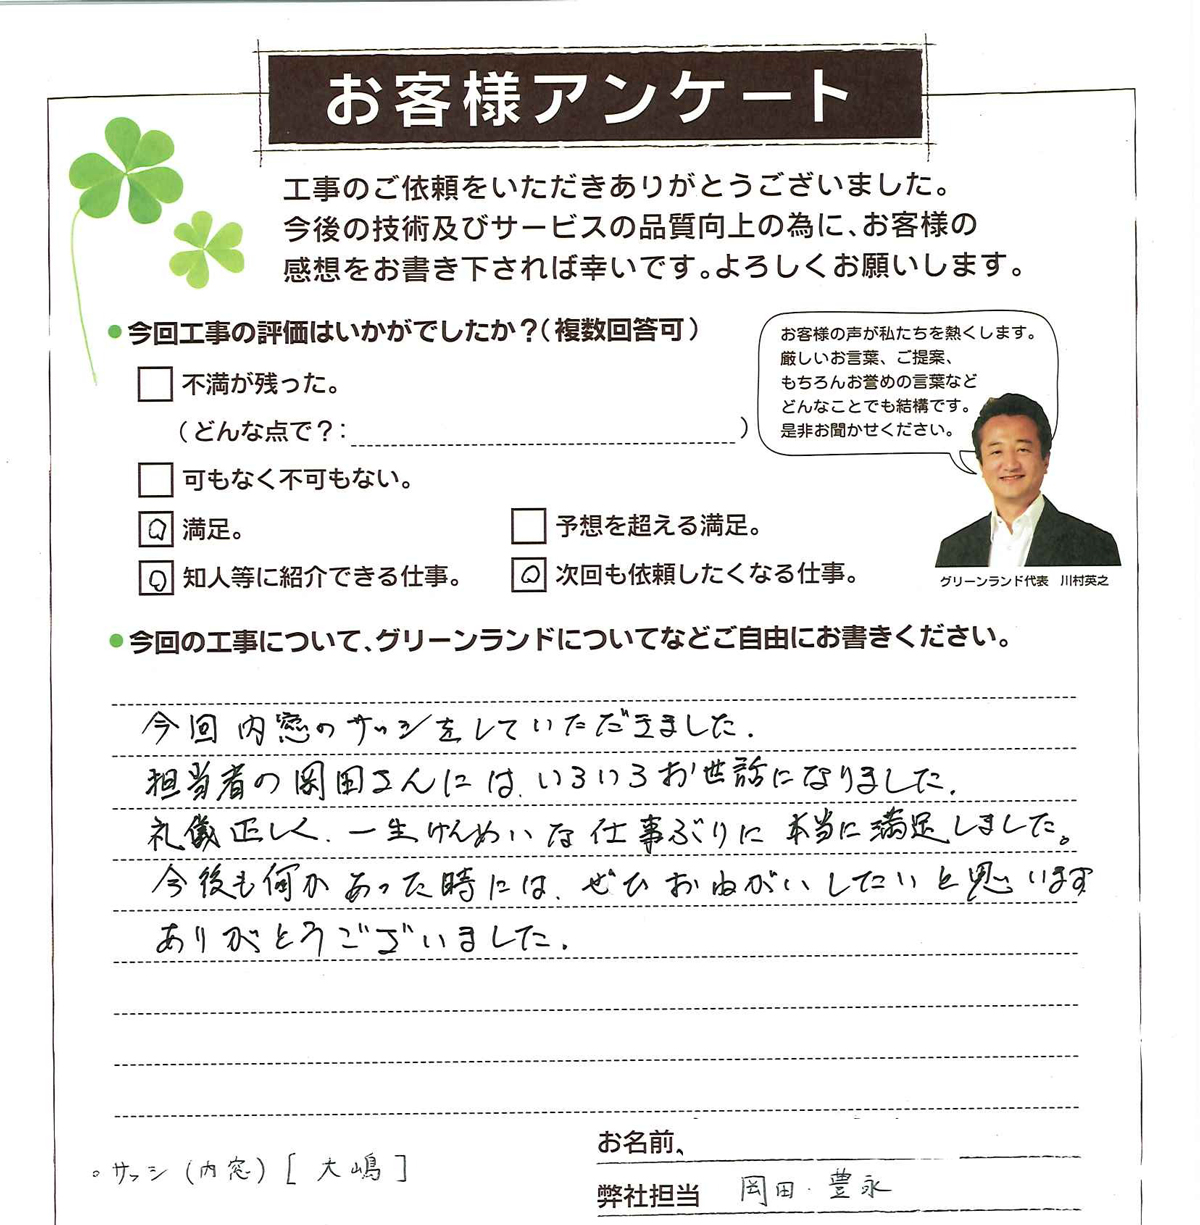 お客様アンケート
工事のご依頼をいただきありがとうございました。
今後の技術及びサービスの品質向上の為に、お客様の
感想をお書き下されば幸いです。よろしくお願いします。
●今回工事の評価はいかがでしたか？（複数回答可）
不満が残った。
（どんな点で？：　）
可もなく不可もない。
満足。
予想を超える満足。
知人等に紹介できる仕事。
次回も依頼したくなる仕事。
お客様の声が私たちを熱くします。
厳しいお言葉、ご提案、
もちろんお誉めの言葉など
どんなことでも結構です。
是非お聞かせください。
グリーンランド代表　川村英之
●今回の工事について、グリーンランドについてなどご自由にお書きください。
今回 内窓のサッシをしていただきました.
担当者の岡田さんには、いろいろお世話になりました.
礼儀正しく、一生けんめいな仕事ぶりに 本当に満足しました。
今後も何かあった時には、ぜひおねがいしたいと思います
ありがとうございました.
お名前、
弊社担当　岡田・豊永
。サッシ（内窓）［ 大嶋 ］